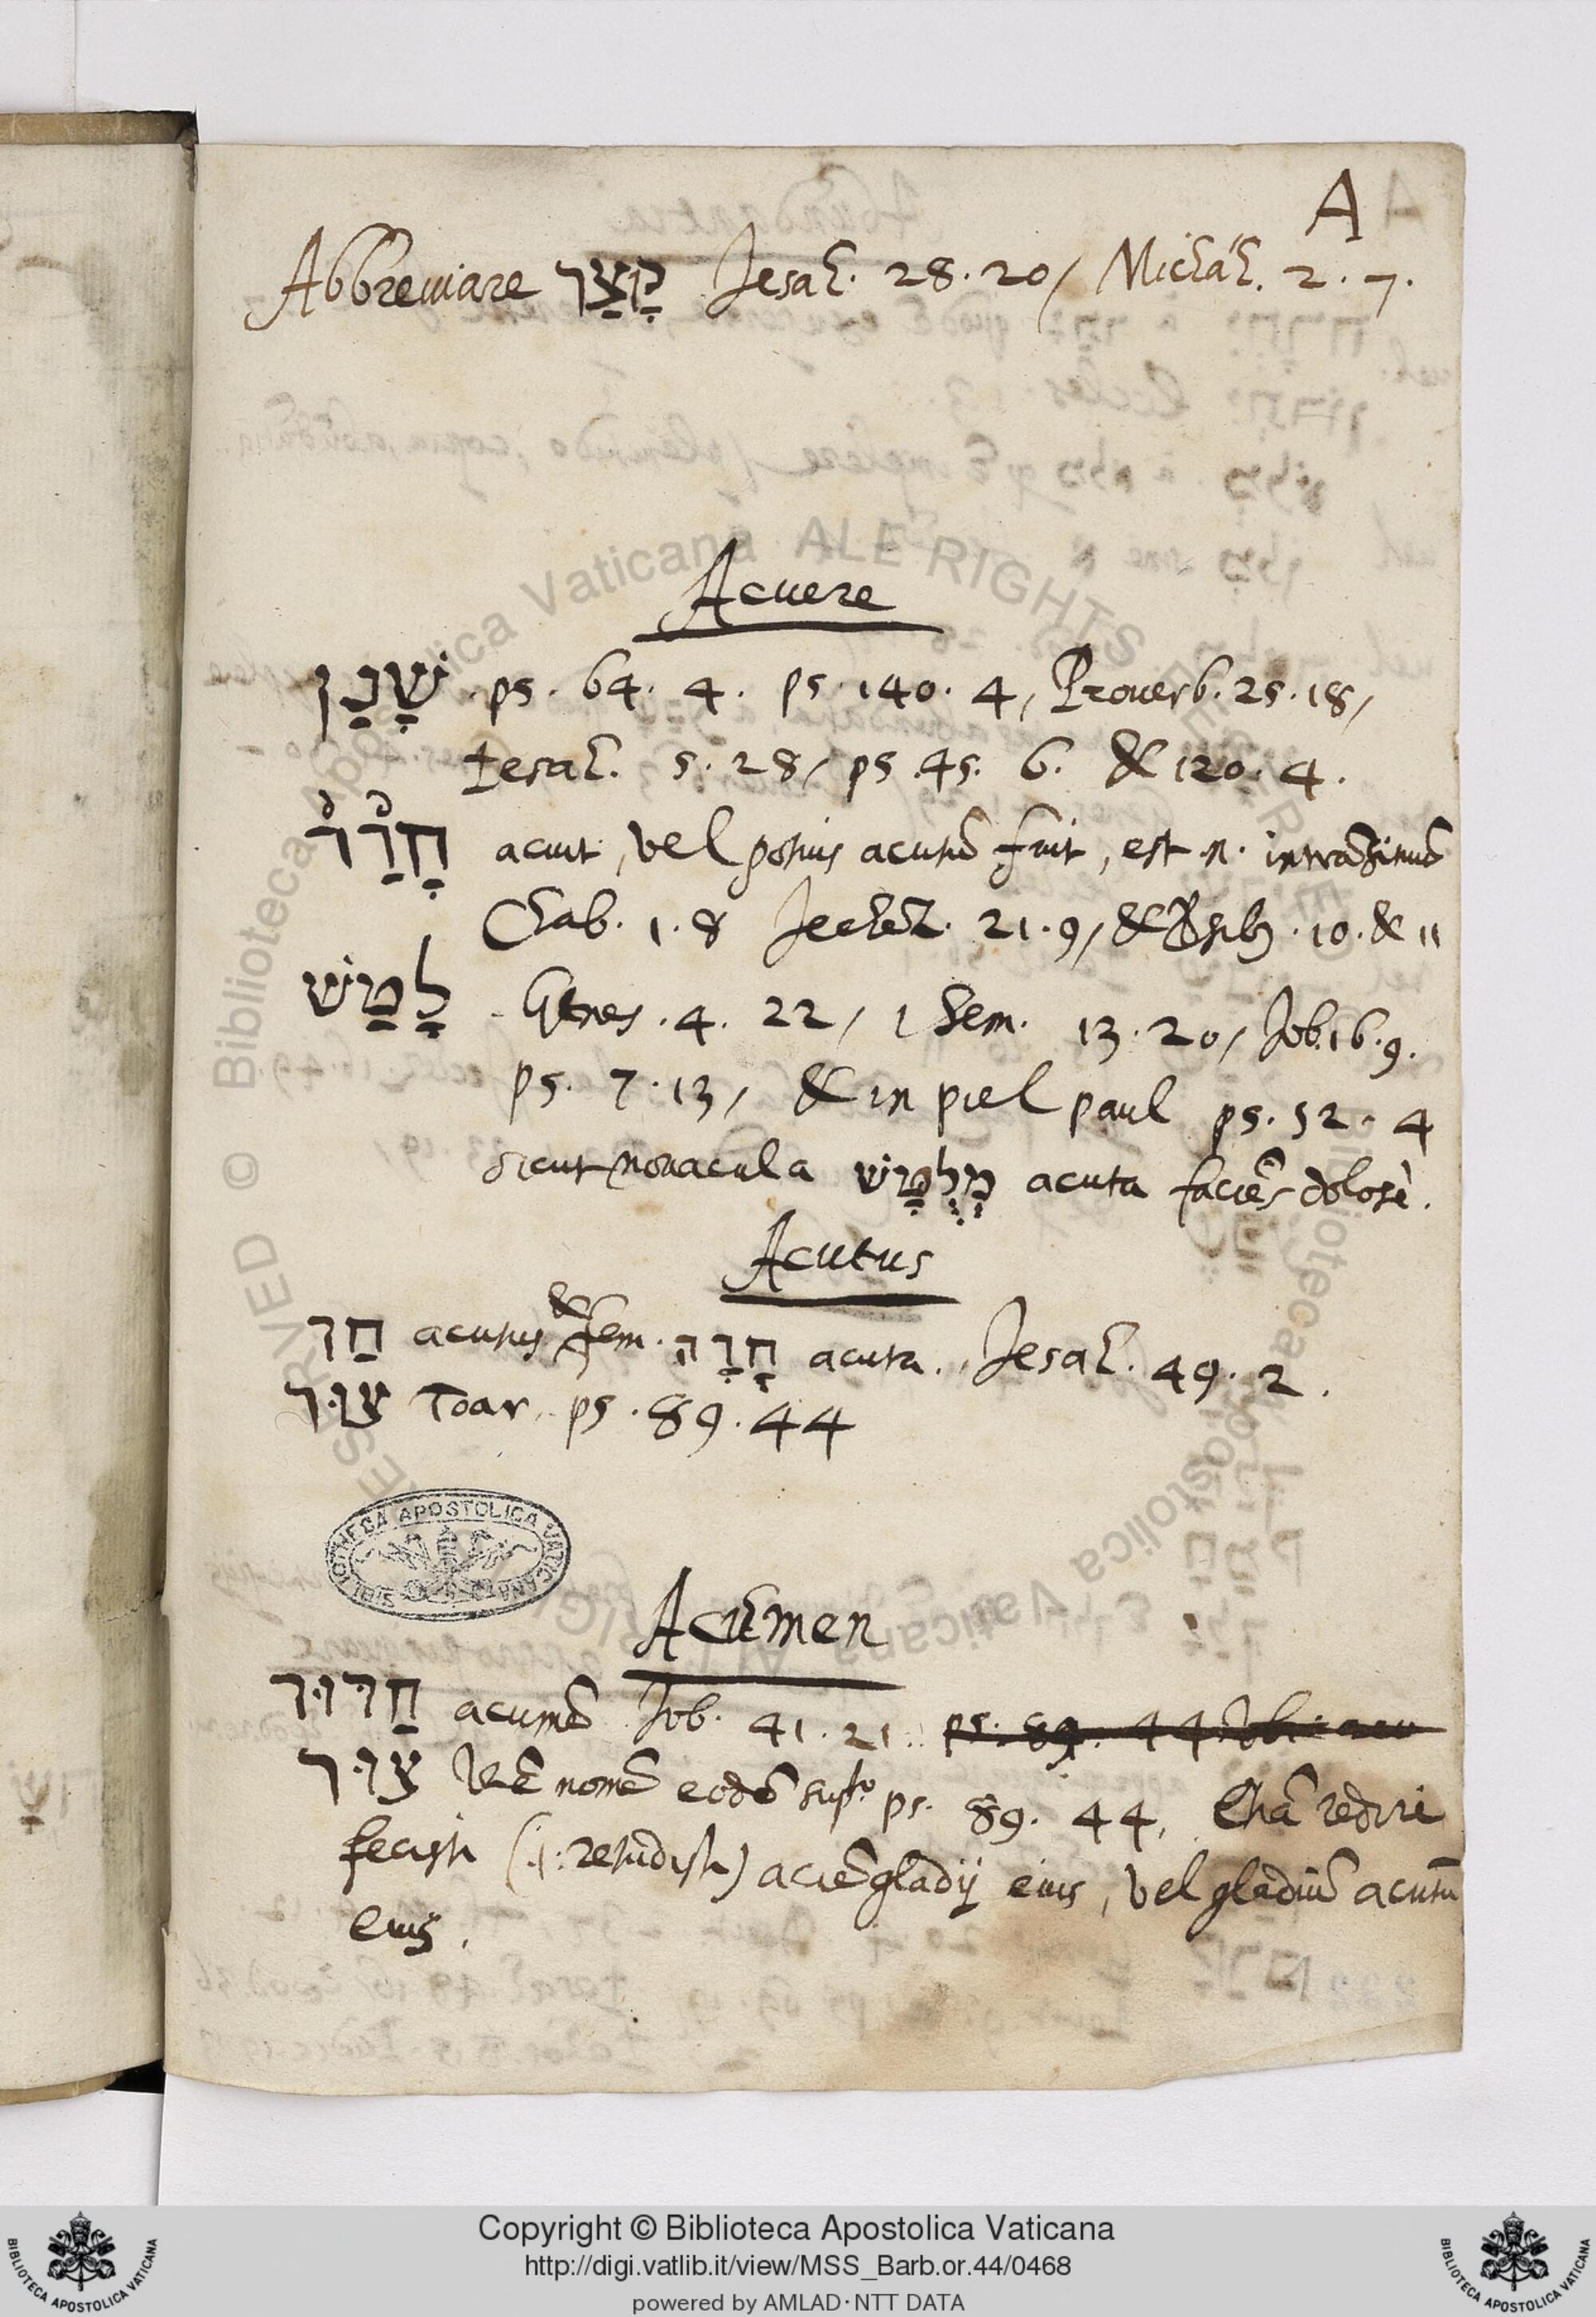 A
Abbreuiare קָצַר Jesah. 28. 20, Michah. 2. 7.
Acuere
שָׁנַן ps. 64. 4. ps. 140. 4, Prouerb. 25. 18,
Jesah. 5. 28, ps. 45. 6. & 120. 4.
חָדַד acuit, vel potius acutũ fuit, est n. intransitiuũ
Chab. 1. 8 Jechez. 21. 9, & 10. & 11
לָטַשׁ Genes. 4. 22, 1 Sem. 13. 20, Job. 16. 9.
ps. 7. 13, & in piel paul ps. 52. 4
sicut nouacula מְלֻטָּשׁ acuta faciẽs dolosè.
Acutus
חַד acutus & fem. חַדָּה acuta. Jesah. 49. 2.
צוּר Toar. ps. 89. 44
Acumen
חַדּוּד acumẽ Job. 41. 21. ps. 89. 44
צוּר nomẽ eodẽ ps. 89. 44, Etiã redire
fecisti (.i. retudisti) aciẽ gladij eius, vel gladiũ acutũ
eius.
BIBLIOTHECA APOSTOLICA VATICANA
Copyright © Biblioteca Apostolica Vaticana
http://digi.vatlib.it/view/MSS_Barb.or.44/0468
powered by AMLAD·NTT DATA
BIBLIOTECA APOSTOLICA VATICANA
BIBLIOTECA APOSTOLICA VATICANA